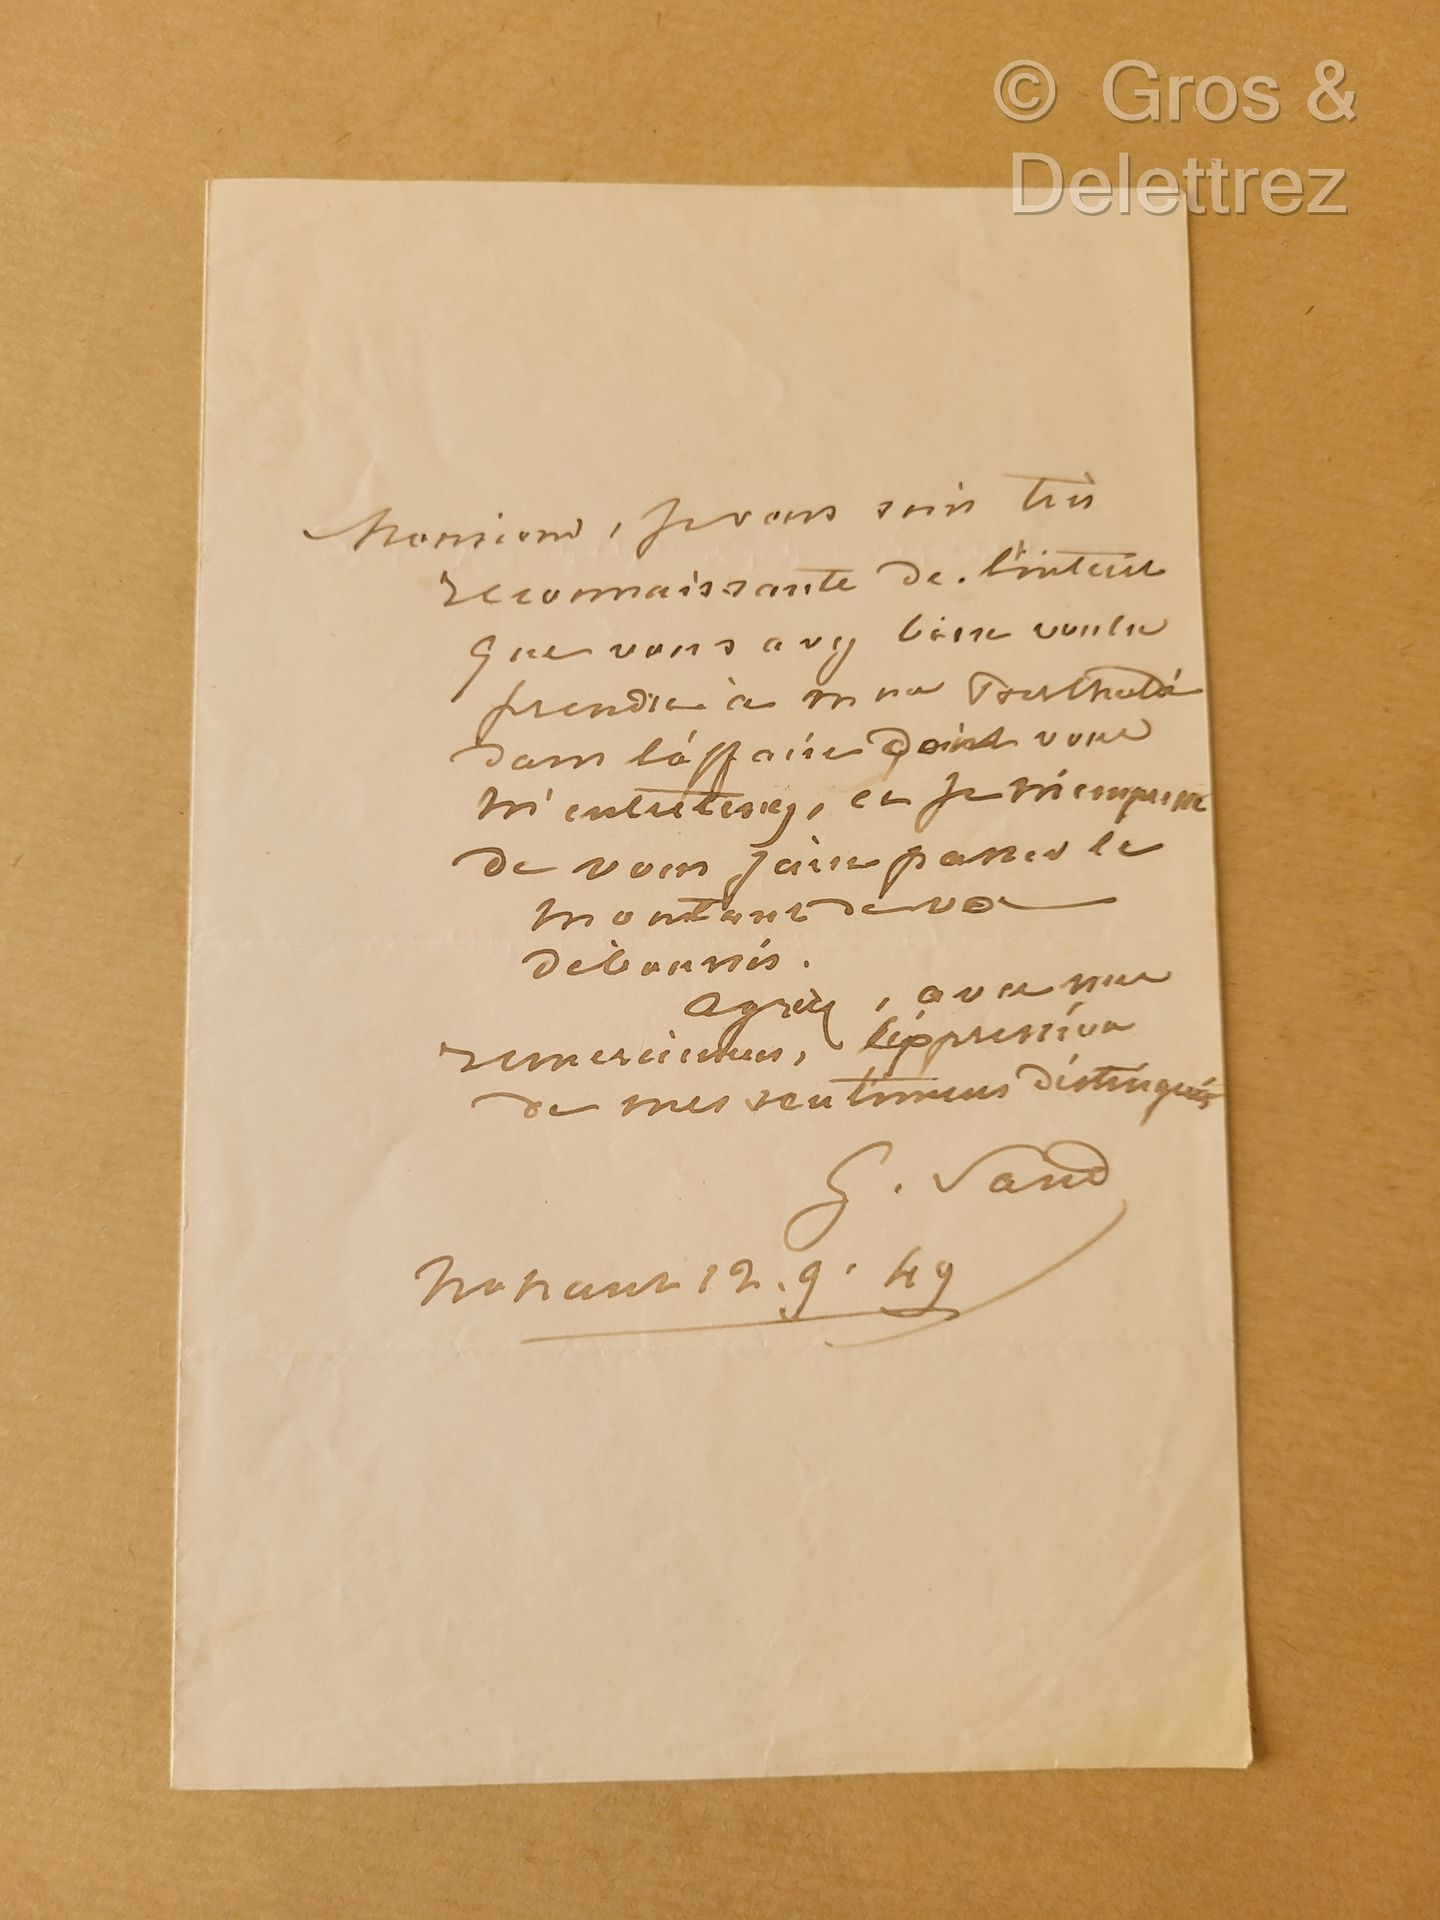 © Gros &
Delettrez
Monsieur, je vous suis très
reconnaissante de l'intérêt
que vous avez bien voulu
prendre à
dans l'affaire dont vous
m'entretenez, et je m'empresse
de vous faire passer le
montant de vos
déboursés.
Agréez, avec mes
remerciemens, l'expression
de mes sentimens distingués
G. Sand
Nohant 12. 9. 49